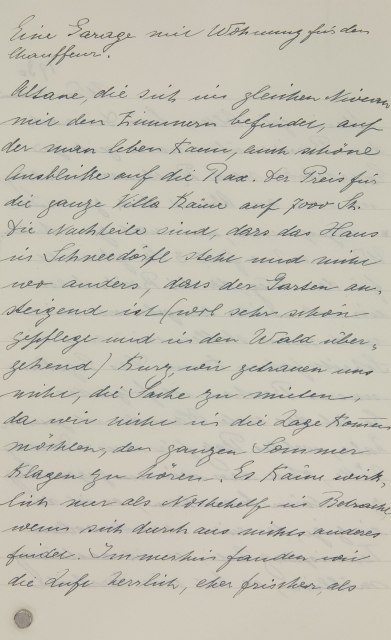 Eine Garage mit Wohnung für den
Chauffeur.
Altane, die sich im gleichen Niveau
mit den Zimmern befindet, auf
der man leben kann, auch schöne
Ausblicke auf die Rax. Der Preis für
die ganze Villa käme auf 7000 Sh.
Die Nachteile sind, dass das Haus
in Schneedörfl steht und nicht
wo anders, dass der Garten an-
steigend ist (wol sehr schön
gepflegt und in den Wald über-
gehend) Kurz wir getrauen uns
nicht, die Sache zu mieten,
da wir nicht in die Lage kommen
möchten, den ganzen Sommer
Klagen zu hören. Es käme wirk-
lich nur als Nothehelf in Betracht
wenn sich durchaus nichts anderes
findet. Immerhin fanden wir
die Luft herrlich, eher frischer, als